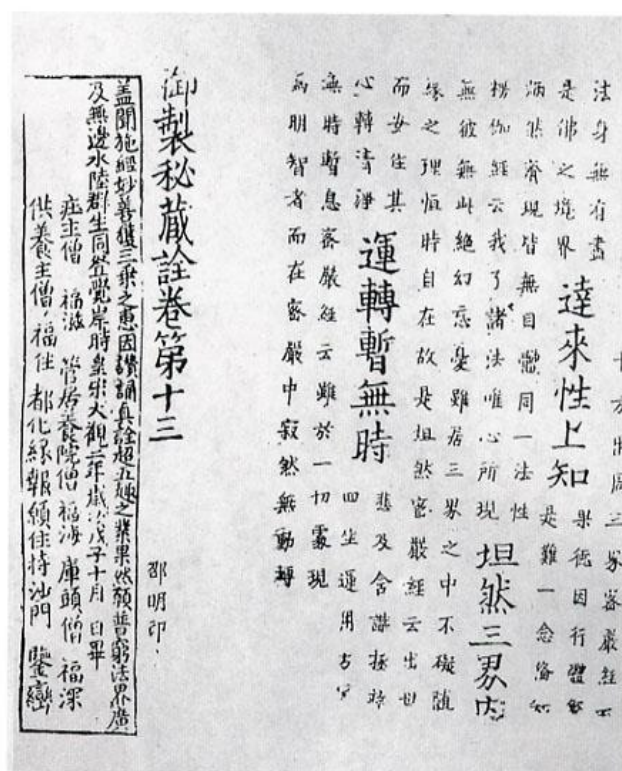 法身無有盡
是佛之境界
達來性上知
果德因行體
是雖一念
炳然齊現皆無自體同一法性
楞伽經云我了諸法唯心所現
坦然三界内
無彼無此絕幻忘憂雖居三界之中不礙隨
緣之理恒時自在故是坦然密嚴經云出世
而安住其
心轉清淨
運轉暫無時
慈及含識拯於
四生運用古
無時暫息密嚴經云雖於一切處現
為明智者而在密嚴中寂然無動轉
御製秘藏詮卷第十三
邵明印
盖聞施經妙善獲三乘之惠因讚誦真詮超五趣之業果然願普窮法界廣
及無邊水陸群生同登覺岸時皇宋大觀二年歲次戊子十月 日畢
庄主僧 福滋 管居養院僧 福海 庫頭僧 福深
供養主僧 福住 都化緣報願住持沙門 鑒巒